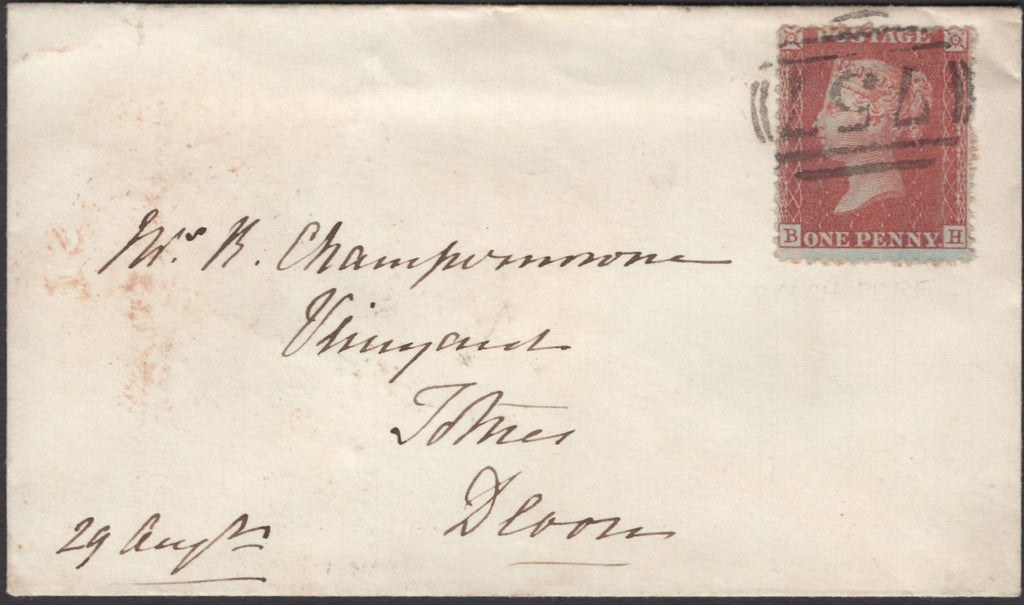 POSTAGE
757
B ONE PENNY. H
Mr. R. Champernowne
Vineyard
Totnes
Devon
29 Augt